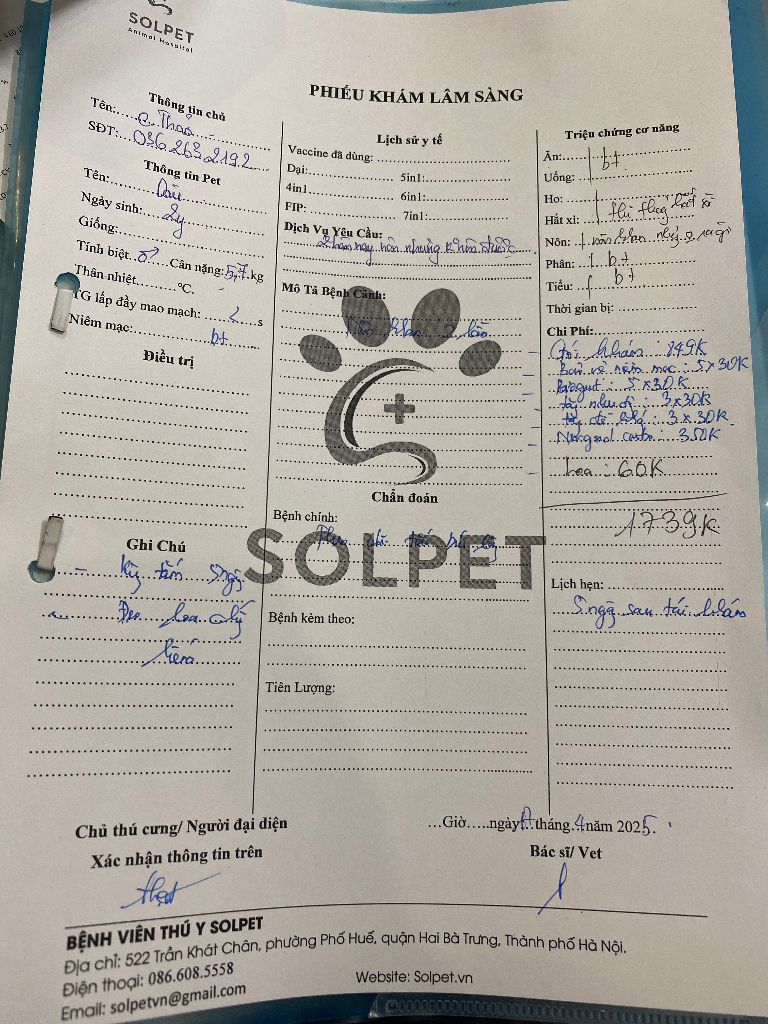 SOLPET
Animal Hospital
PHIẾU KHÁM LÂM SÀNG
Thông tin chủ
Tên: c. Thảo
SĐT: 036 263 2192
Thông tin Pet
Tên:
Ngày sinh: 2y
Giống:
Tính biệt ♂ Cân nặng: 5,7 kg
Thân nhiệt °C.
TG lấp đầy mao mạch: 2 s
Niêm mạc: bt
Điều trị
Ghi Chú
- 5 ngày
Đeo loa chống
liếm
Lịch sử y tế
Vaccine đã dùng:
Dại: 5in1:
4in1 6in1:
FIP: 7in1:
Dịch Vụ Yêu Cầu:
nay nôn nhưng k nôn được
Mô Tả Bệnh Cảnh:
Nôn khan 2 lần
Chẩn đoán
Bệnh chính:
SOLPET
Bệnh kèm theo:
Tiên Lượng:
Triệu chứng cơ năng
Ăn: bt
Uống:
Ho:
Hắt xì: thi thoảng hắt xì
Nôn: nôn khan
Phân: bt
Tiểu: bt
Thời gian bị:
Chi Phí:
- Gói khám: 849K
- Bảo vệ niêm mạc: 5x30K
- 5x30K
- 3x30K
- 3x30K
- 350K
loa: 60K
1739K
Lịch hẹn:
5 ngày sau tái khám
Chủ thú cưng/ Người đại diện
Xác nhận thông tin trên
...Giờ.....ngày tháng 4 năm 2025.
Bác sĩ/ Vet
BỆNH VIÊN THÚ Y SOLPET
Địa chỉ: 522 Trần Khát Chân, phường Phố Huế, quận Hai Bà Trưng, Thành phố Hà Nội.
Điện thoại: 086.608.5558
Website: Solpet.vn
Email: solpetvn@gmail.com